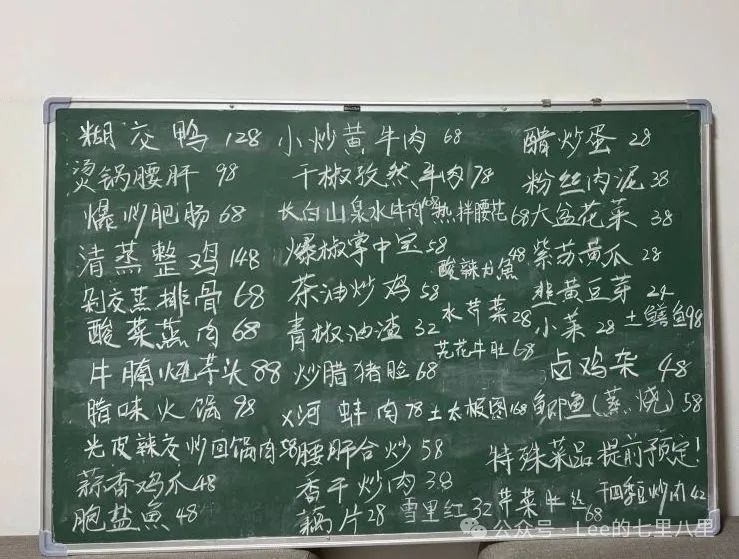 糊交鸭 128
烫锅腰肝 98
爆炒肥肠 68
清蒸整鸡 148
剁交蒸排骨 68
酸菜蒸肉 68
牛腩烧芋头 88
腊味火锅 98
光皮辣交炒回锅肉 58
蒜香鸡爪 48
刨盐魚 48
小炒黄牛肉 68
干椒孜然牛肉 78
长白山泉水牛肉 68
热拌腰花 68
爆椒掌中宝 58
酸辣力魚 48
茶油炒鸡 58
水芹菜 28
青椒油渣 32
芫花牛肚 68
炒腊猪脸 68
x河蚌肉 78
土太极图 168
腰肝合炒 58
香干炒肉 38
藕片 28
雪里红 32
芹菜肚丝 68
醋炒蛋 28
粉丝肉泥 38
大盆花菜 38
紫苏黄瓜 28
韭黄豆芽 24
小菜 28
土鳝鱼 98
卤鸡杂 48
鲫鱼(蒸、烧) 58
特殊菜品提前预定!
干四季豆炒肉 42
公众号·Lee的七里八里